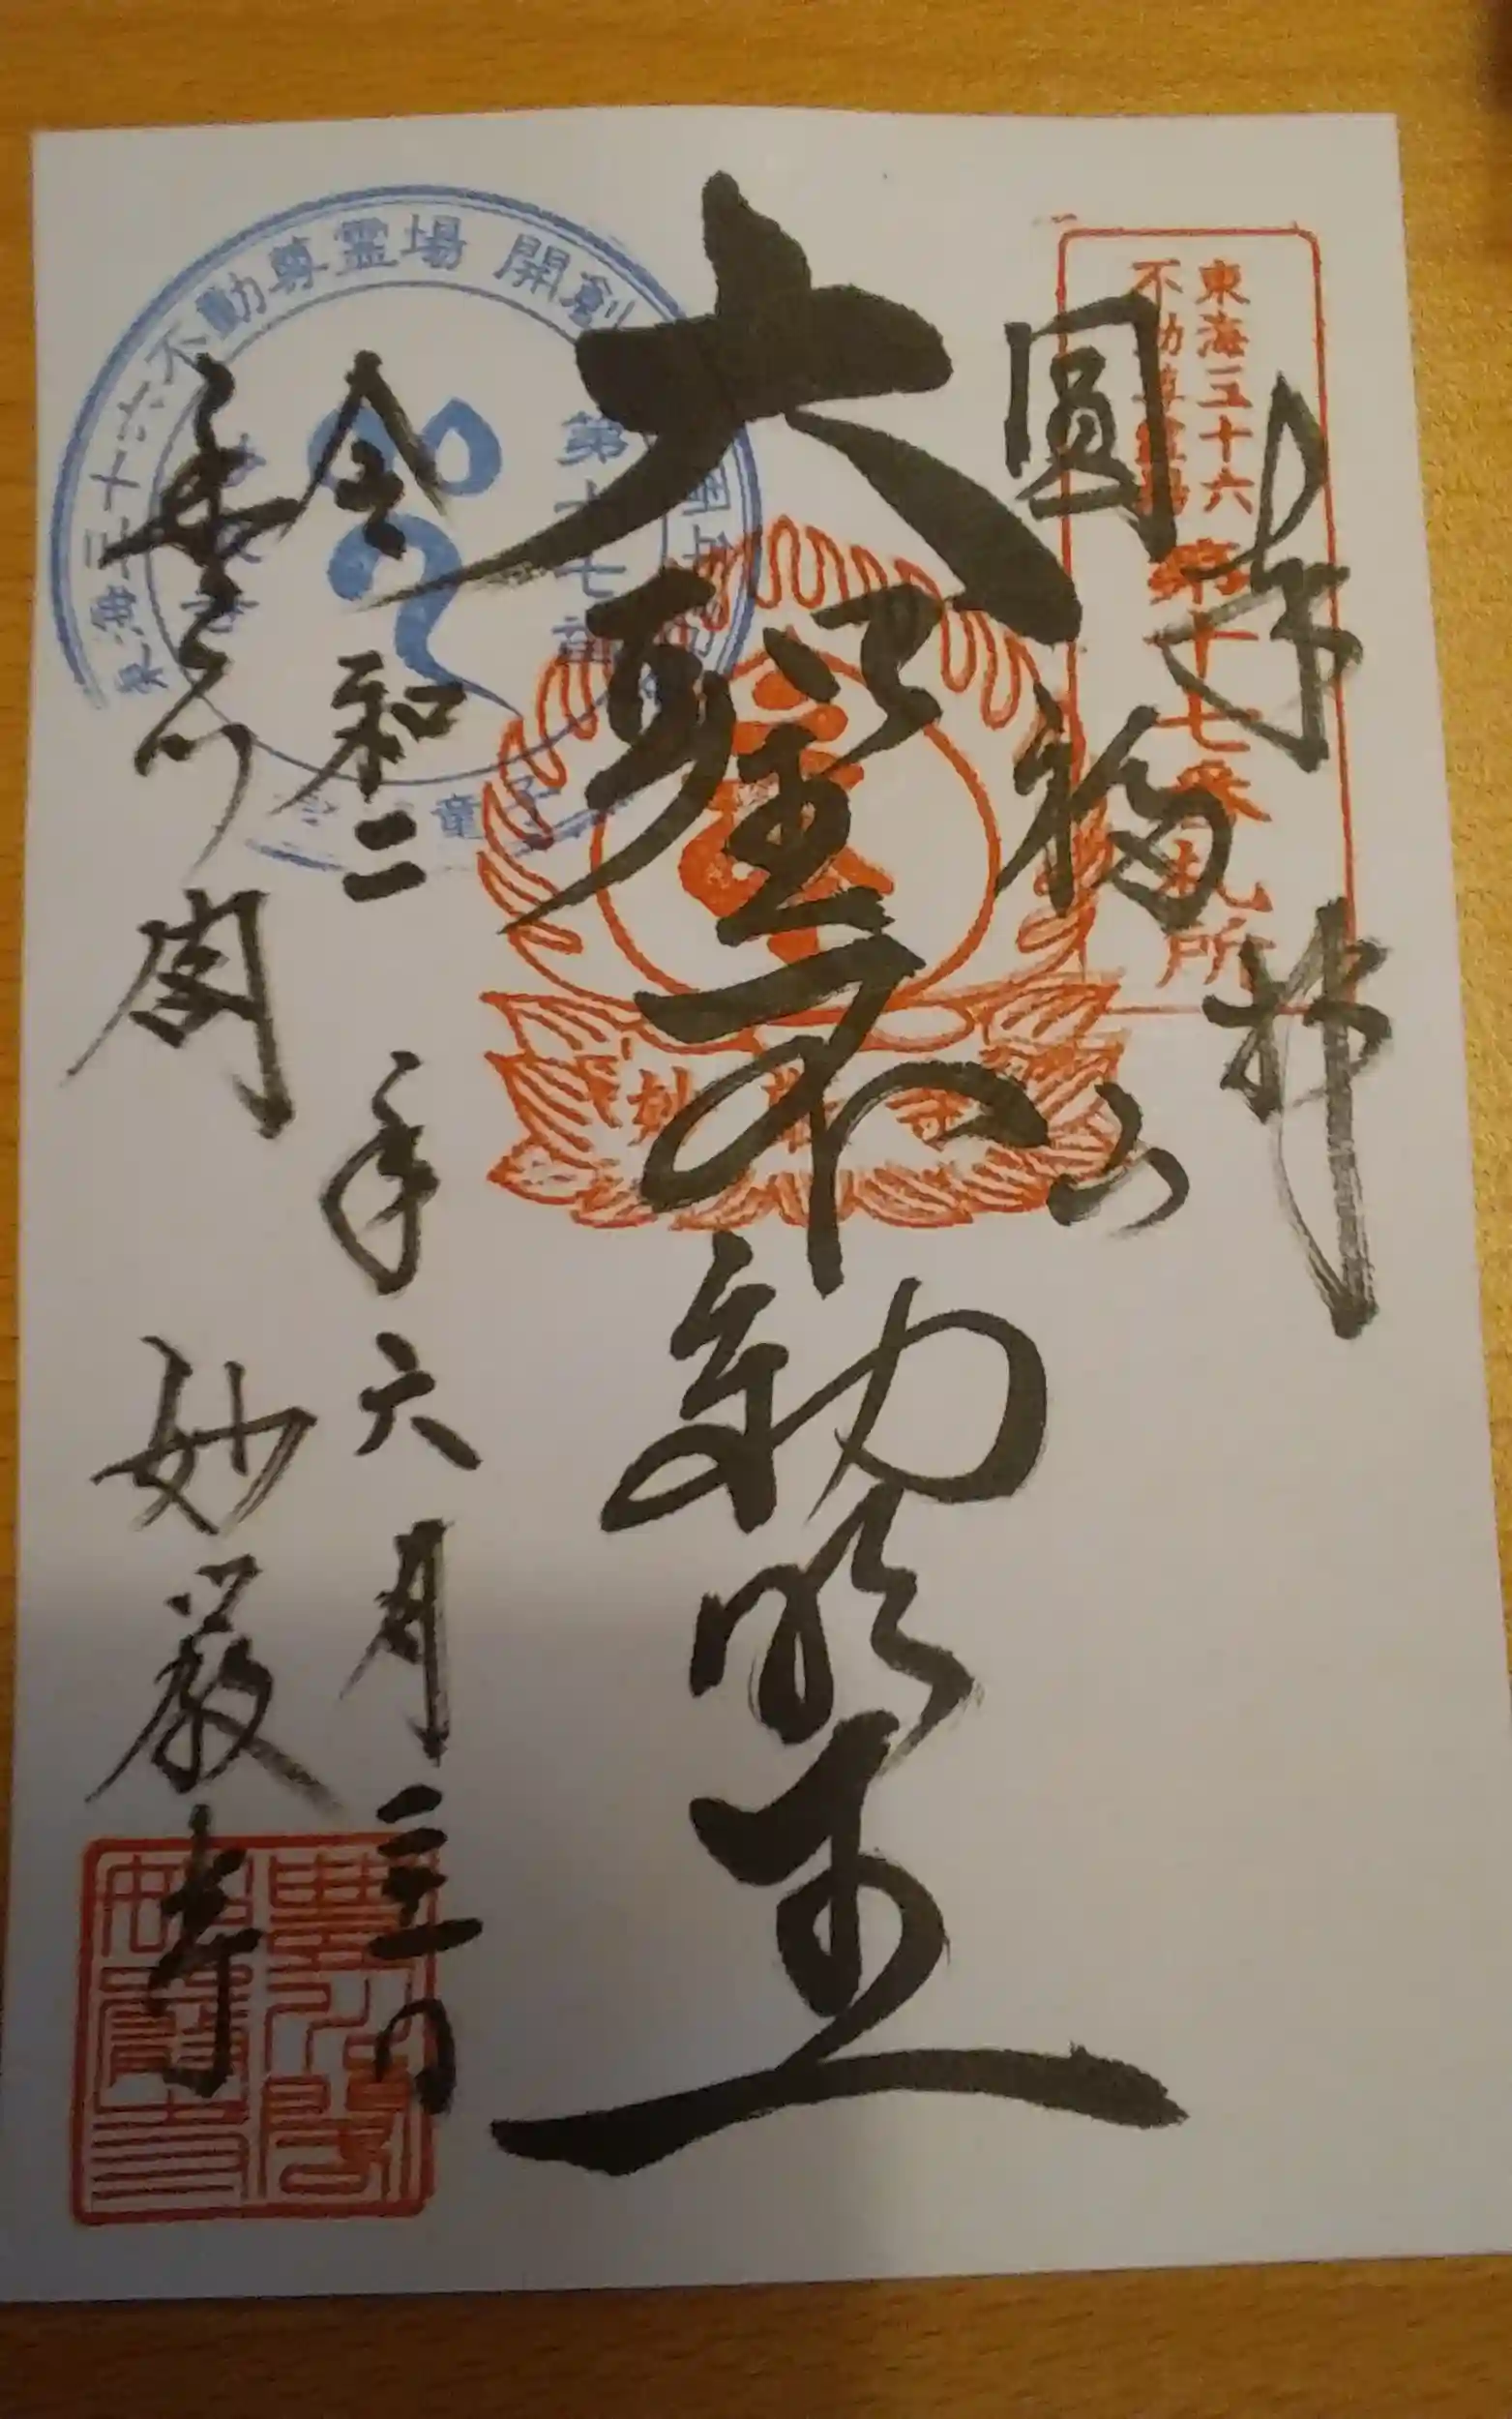 奉拝
東海三十六
不動尊霊場
第十七番札所
圓福山
大聖不動明王
妙嚴寺
令和二年六月三日
豊川閣 妙嚴寺
東海三十六不動尊霊場 開創
第十七番
童子